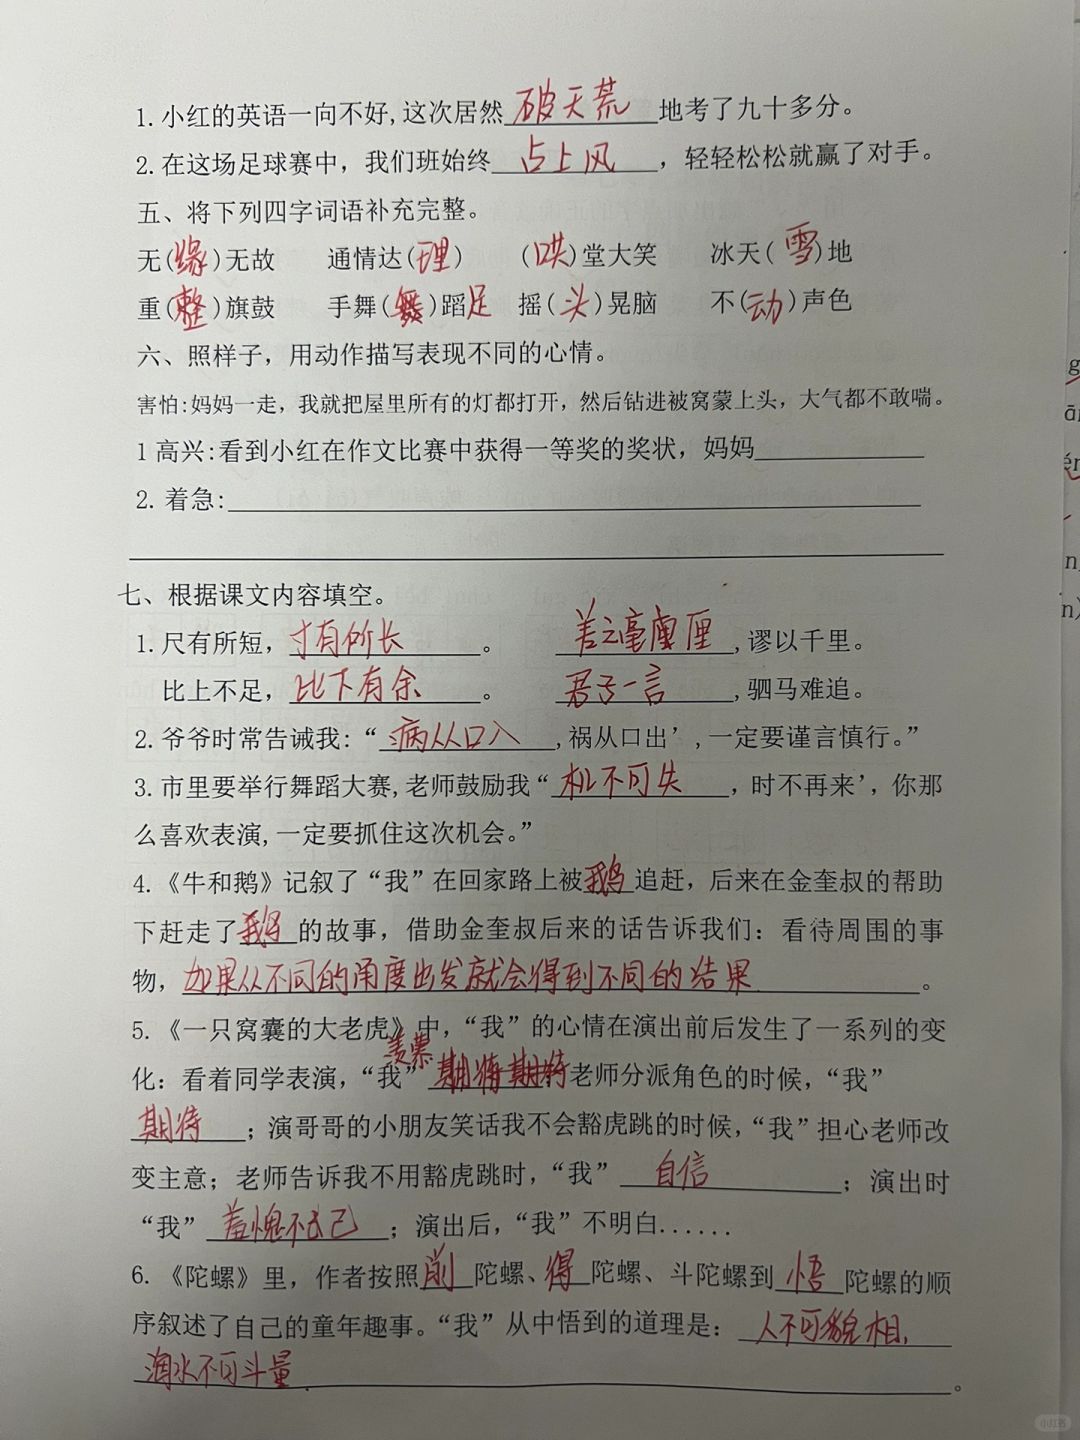 1.小红的英语一向不好,这次居然破天荒地考了九十多分。
2.在这场足球赛中，我们班始终占上风，轻轻松松就赢了对手。
五、将下列四字词语补充完整。
无(缘)无故 通情达(理) (哄)堂大笑 冰天(雪)地
重(整)旗鼓 手舞(舞)蹈足 摇(头)晃脑 不(动)声色
六、照样子，用动作描写表现不同的心情。
害怕:妈妈一走，我就把屋里所有的灯都打开，然后钻进被窝蒙上头，大气都不敢喘。
1高兴:看到小红在作文比赛中获得一等奖的奖状，妈妈
2.着急:
七、根据课文内容填空。
1.尺有所短，寸有所长。 差之毫厘,谬以千里。
比上不足，比下有余。 君子一言,驷马难追。
2.爷爷时常告诫我:“病从口入,祸从口出’,一定要谨言慎行。”
3.市里要举行舞蹈大赛,老师鼓励我“机不可失，时不再来’，你那
么喜欢表演,一定要抓住这次机会。”
4.《牛和鹅》记叙了“我”在回家路上被鹅追赶，后来在金奎叔的帮助
下赶走了鹅的故事，借助金奎叔后来的话告诉我们：看待周围的事
物，如果从不同的角度出发就会得到不同的结果。
5.《一只窝囊的大老虎》中，“我”的心情在演出前后发生了一系列的变
化：看着同学表演，“我”羡慕老师分派角色的时候，“我”
期待；演哥哥的小朋友笑话我不会豁虎跳的时候，“我”担心老师改
变主意；老师告诉我不用豁虎跳时，“我”自信；演出时
“我”羞愧不已；演出后，“我”不明白......
6.《陀螺》里，作者按照削陀螺、得陀螺、斗陀螺到悟陀螺的顺
序叙述了自己的童年趣事。“我”从中悟到的道理是：人不可貌相,
海水不可斗量。
小红书